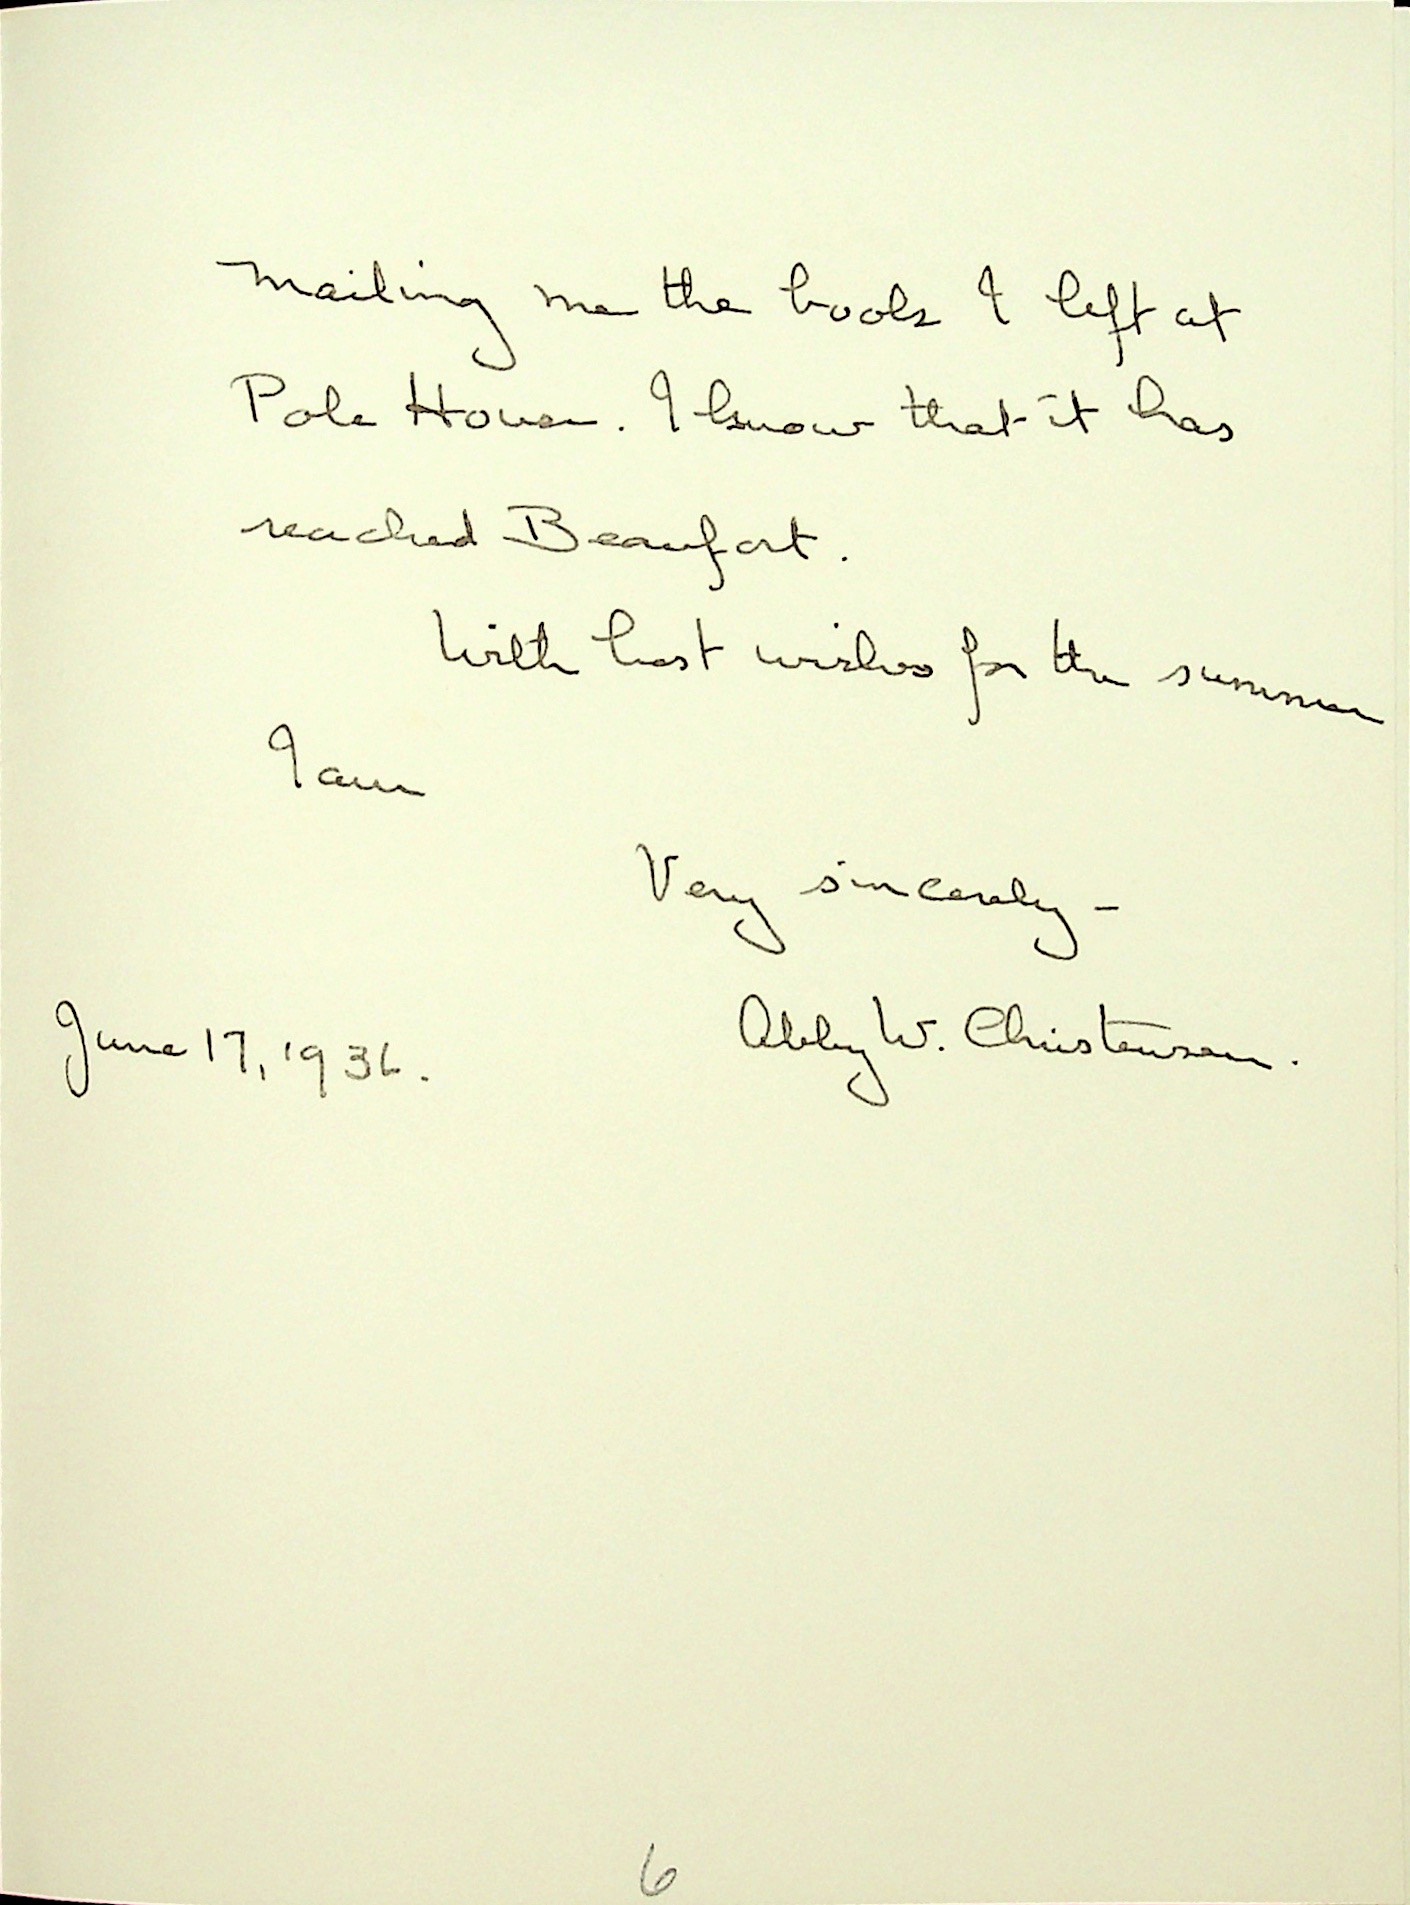 mailing me the book I left at
Pole House. I know that it has
reached Beaufort.
With best wishes for the summer
I am
Very sincerely -
Abby W. Christensen.
June 17, 1936.
6